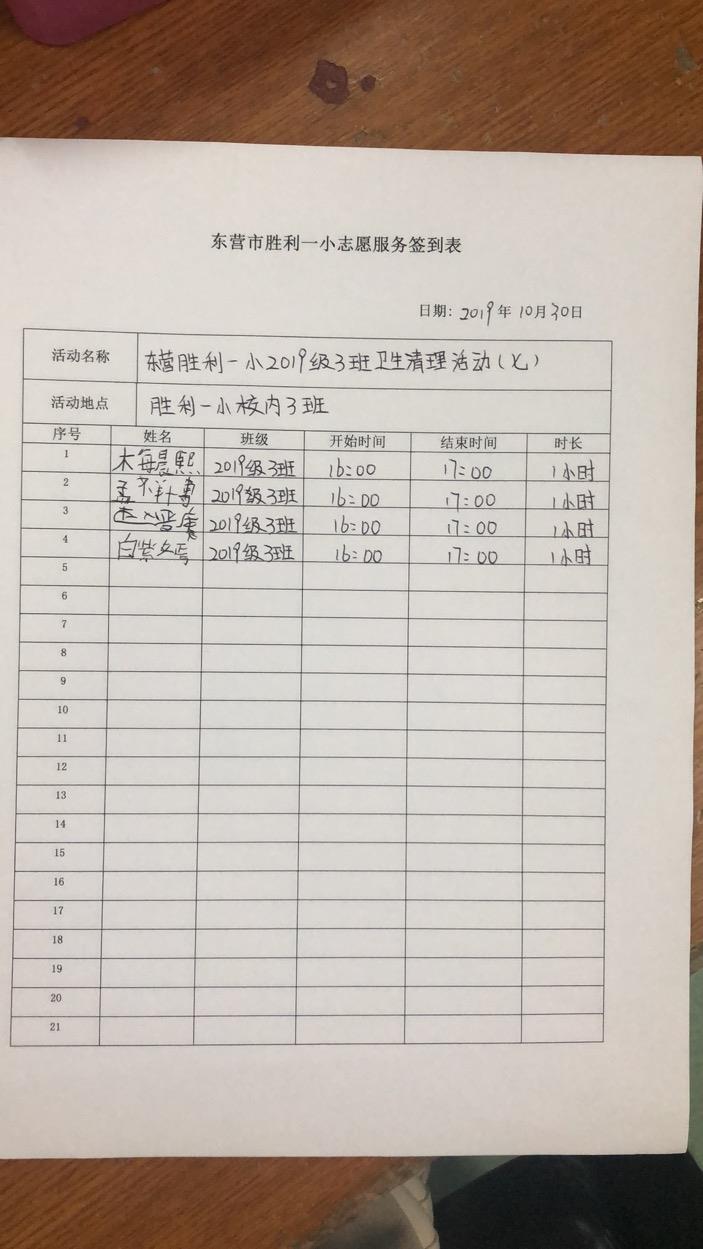 东营市胜利一小志愿服务签到表
日期: 2019年10月30日
活动名称 东营胜利一小2019级3班卫生清理活动(七)
活动地点 胜利一小校内3班
序号 姓名 班级 开始时间 结束时间 时长
1 2019级3班 16:00 17:00 1小时
2 孟祥博 2019级3班 16:00 17:00 1小时
3 2019级3班 16:00 17:00 1小时
4 2019级3班 16:00 17:00 1小时
5
6
7
8
9
10
11
12
13
14
15
16
17
18
19
20
21